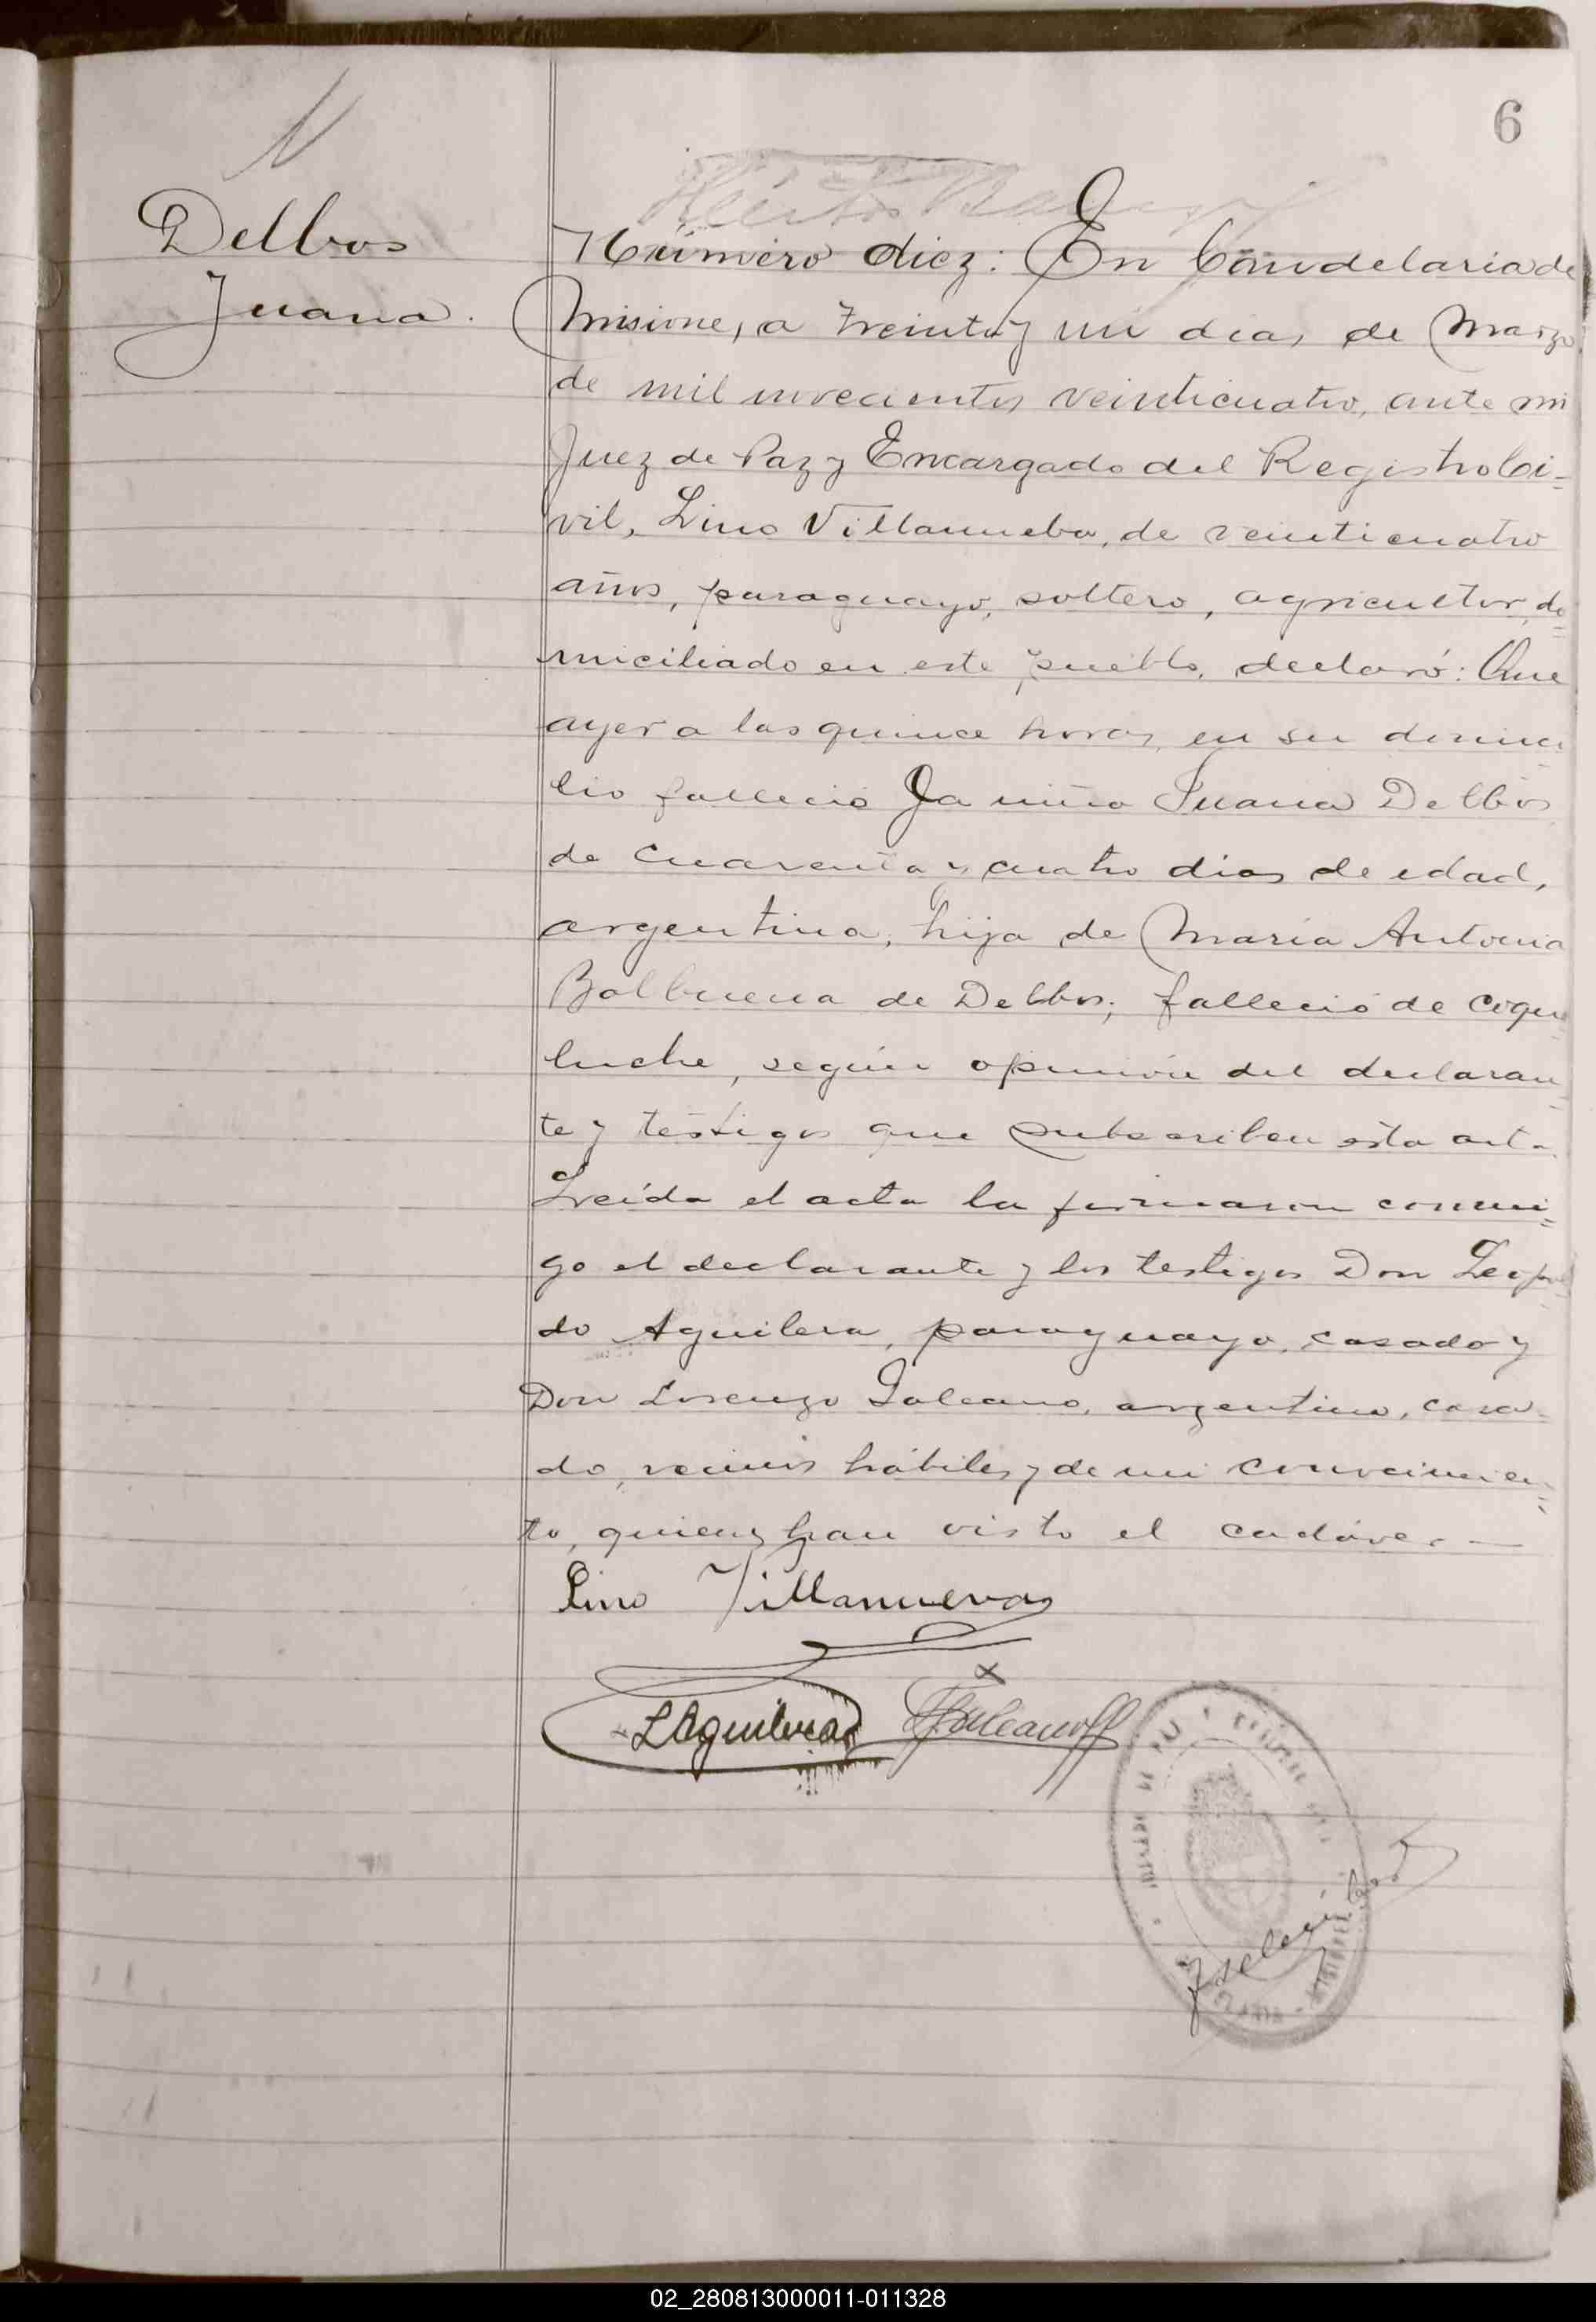 6
Delbos
Juana.
Número diez: En Candelaria de
Misiones, a treinta y un dias de Marzo
de mil novecientos veinticuatro, ante mi
Juez de Paz y Encargado del Registro Ci-
vil, Lino Villanueba, de veinticuatro
años, paraguayo, soltero, agricultor, do=
miciliado en este pueblo, declaró: Que
ayer a las quince horas, en su domici-
lio falleció la niña Juana Delbos
de cuarenta y cuatro dias de edad,
argentina, hija de Maria Antonia
Balbuena de Delbos; falleció de coque-
luche, según opinión del declaran-
te y testigos que subscriben esta acta.
Leída el acta la firmaron conmi=
go el declarante y los testigos Don Leopol-
do Aguilera, paraguayo, casado y
Don Lorenzo Galeano, argentino, casa-
do, vecinos hábiles y de mi conocimien-
to, quienes han visto el cadáver—
Lino Villanueva
LAguilera
LGaleano
02_280813000011-011328